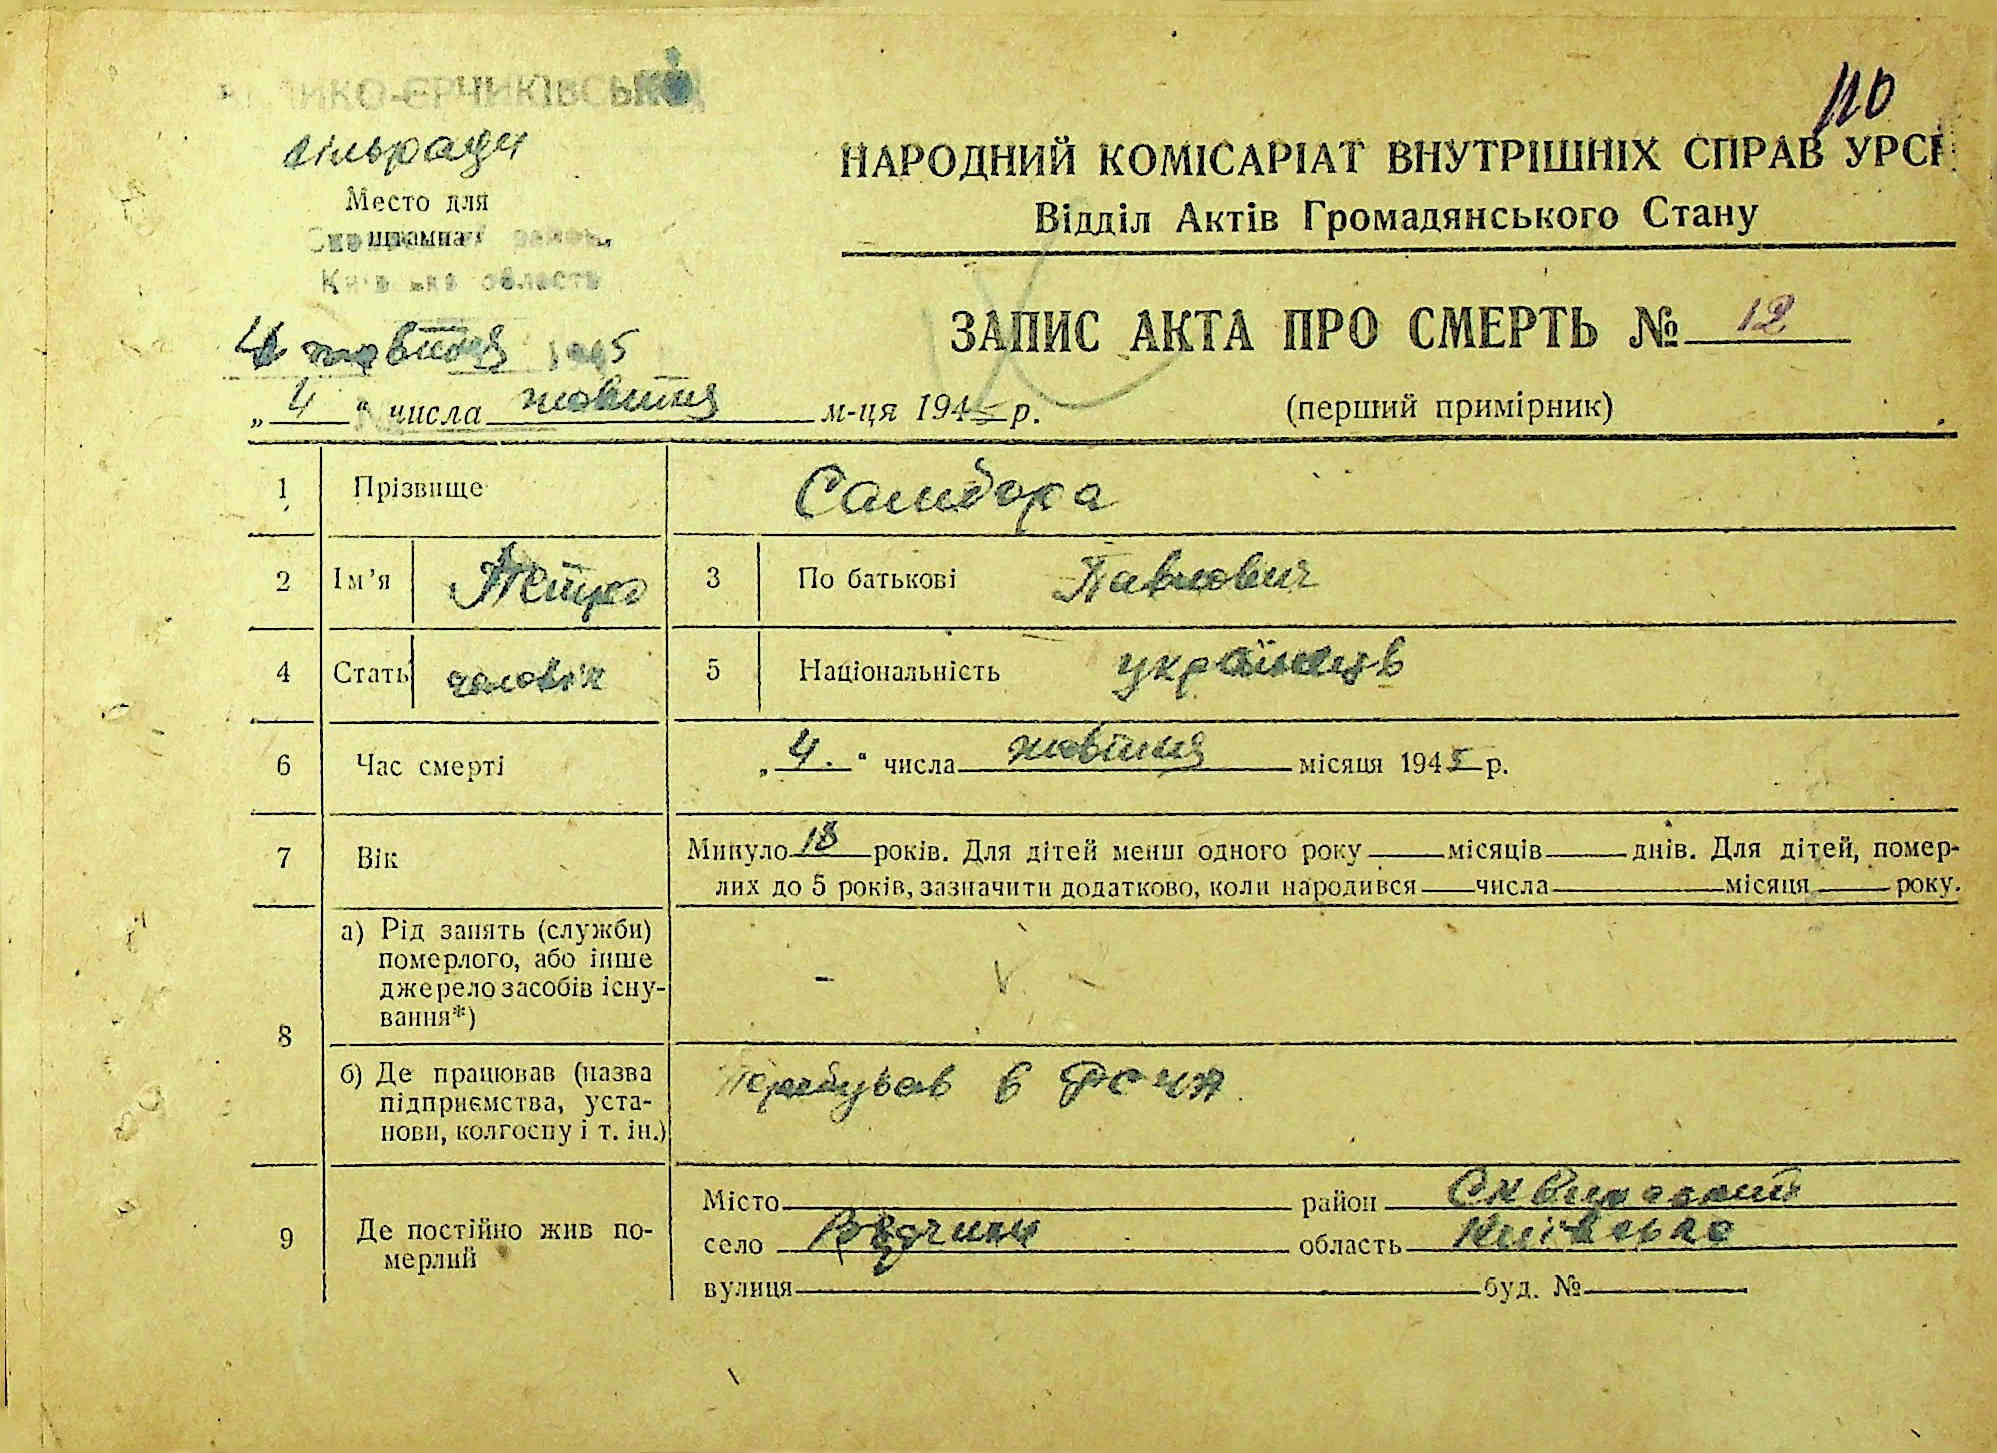 ВЕЛИКО-ЄРЧИКІВСЬКОЇ
сільради
110
НАРОДНИЙ КОМІСАРІАТ ВНУТРІШНІХ СПРАВ УРСР
Відділ Актів Громадянського Стану
Место для
штампа
район
область
4 жовтня 1945
ЗАПИС АКТА ПРО СМЕРТЬ № 12
„ 4 “ числа жовтня м-ця 1945 р.
(перший примірник)
1 Прізвище Самбора
2 Ім’я Петро 3 По батькові Павлович
4 Стать чоловік 5 Національність українець
6 Час смерті „ 4. “ числа жовтня місяця 1945 р.
7 Вік Минуло 18 років. Для дітей менш одного року місяців днів. Для дітей, помер-
лих до 5 років, зазначити додатково, коли народився числа місяця року.
8 а) Рід занять (служби)
померлого, або інше
джерело засобів існу-
вання*) -
б) Де працював (назва
підприємства, уста-
нови, колгоспу і т. ін.)
Перебував в РСЧА
9 Де постійно жив по-
мерлий
Місто район Сквирський
село область Київська
вулиця буд. №